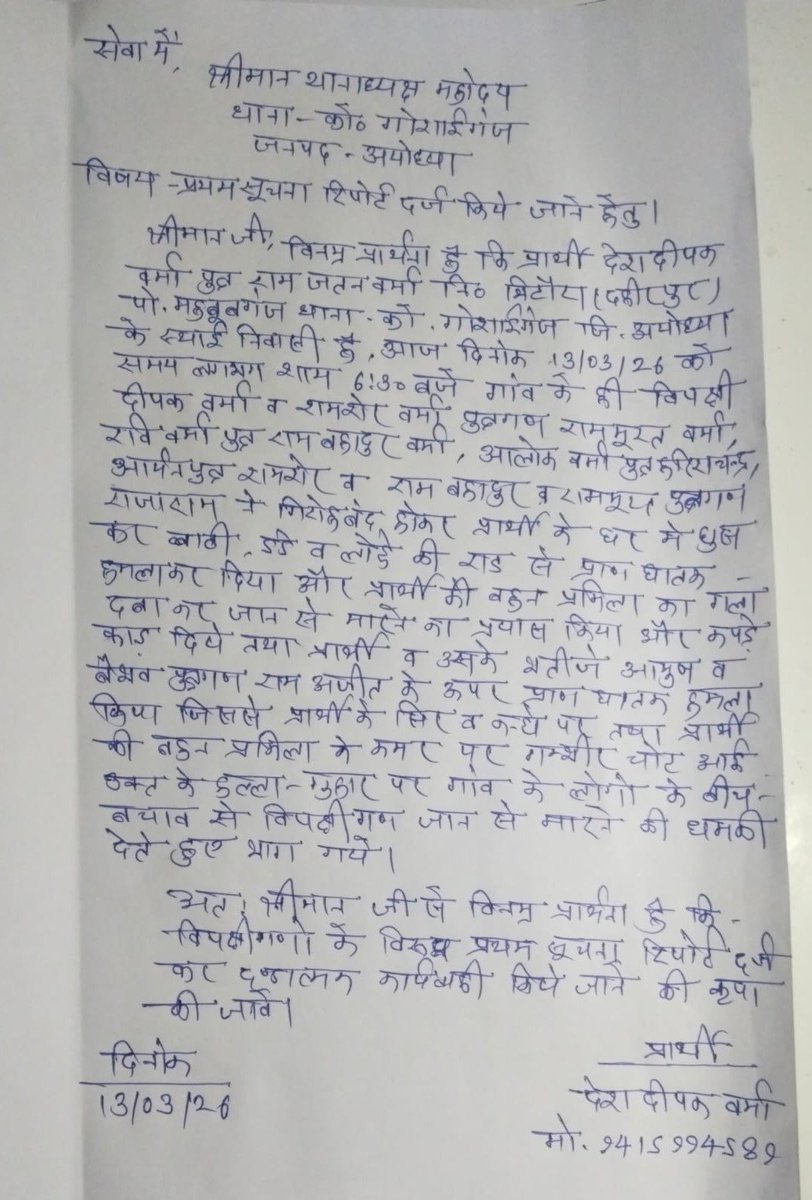 सेवा में,
श्रीमान थानाध्यक्ष महोदय
थाना - को० गोशाईगंज
जनपद - अयोध्या
विषय - प्रथम सूचना रिपोर्ट दर्ज किये जाने हेतु।
श्रीमान जी, विनम्र प्रार्थना है कि प्रार्थी देशदीपक
वर्मा पुत्र राम जतन वर्मा नि० भिटौरा (दलीरपुर)
पो. महबूबगंज थाना - को. गोशाईगंज जि. अयोध्या
के स्थाई निवासी है, आज दिनांक 13/03/26 को
समय लगभग शाम 6:30 बजे गांव के ही विपक्षी
दीपक वर्मा व शमशेर वर्मा पुत्रगण राममूरत वर्मा,
रवि वर्मा पुत्र राम बहादुर वर्मा, आलोक वर्मा पुत्र हरिशचन्द्र,
आर्यन पुत्र शमशेर व राम बहादुर व राममूरत पुत्रगण
राजाराम ने गिरोहबंद होकर प्रार्थी के घर मे घुस
कर लाठी, डंडे व लोहे की राड से प्राण घातक
हमलाकर दिया और प्रार्थी की बहन प्रमिला का गला
दबा कर जान से मारने का प्रयास किया और कपड़े
फाड़ दिये तथा प्रार्थी व उसके भतीजे आयुष व
वैभव पुत्रगण राम अजीत के ऊपर प्राण घातक हमला
किया जिससे प्रार्थी के सिर व कन्धे पर तथा प्रार्थी
की बहन प्रमिला के कमर पर गम्भीर चोट आई
उक्त के हल्ला - गुहार पर गांव के लोगो के बीच -
बचाव से विपक्षीगण जान से मारने की धमकी
देते हुए भाग गये।
अतः श्रीमान जी से विनम्र प्रार्थना है कि -
विपक्षीगणों के विरूद्ध प्रथम सूचना रिपोर्ट दर्ज
कर दण्डात्मक कार्यवाही किये जाने की कृपा
की जावे।
दिनांक
13/03/26
प्रार्थी
देश दीपक वर्मा
मो. 9415994589